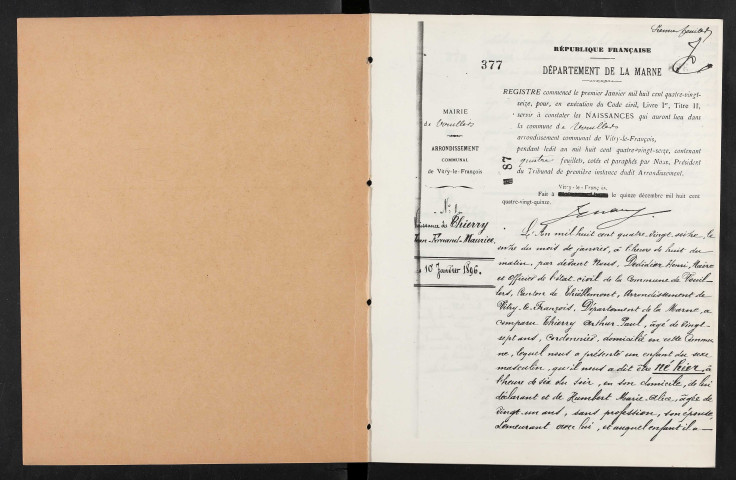 RÉPUBLIQUE FRANÇAISE
377
DÉPARTEMENT DE LA MARNE
REGISTRE commencé le premier Janvier mil huit cent quatre-vingt-
seize, pour, en exécution du Code civil, Livre Ier, Titre II,
servir à constater les NAISSANCES qui auront lieu dans
la commune de Vouillers
arrondissement communal de Vitry-le-François,
pendant ledit an mil huit cent quatre-vingt-seize, contenant
quatre feuillets, cotés et paraphés par Nous, Président
du Tribunal de première instance dudit Arrondissement.
Fait à Vitry-le-François, le quinze décembre mil huit cent
quatre-vingt-quinze.
MAIRIE
de Vouillers
ARRONDISSEMENT
COMMUNAL
de Vitry-le-François
87
N° 1
Naissance de Thierry
Fernand-Maurice
10 Janvier 1896.
L'An mil huit cent quatre-vingt-seize, le
onze du mois de janvier, à l'heure de huit du
matin, par devant Nous, Henri, Maire
et officier de l'état-civil de la Commune de Vouil-
lers, Canton de Thiéblemont, Arrondissement de
Vitry-le-François, Département de la Marne, a
comparu Thierry Arthur Paul, âgé de vingt-
sept ans, cordonnier, domicilié en cette Commu-
ne, lequel nous a présenté un enfant du sexe
masculin, qu'il nous a dit être né hier, à
l'heure de six du soir, en son domicile, de lui
déclarant et de Humbert Marie-Alice, âgée de
vingt-un ans, sans profession, son épouse,
demeurant avec lui, et auquel enfant il a